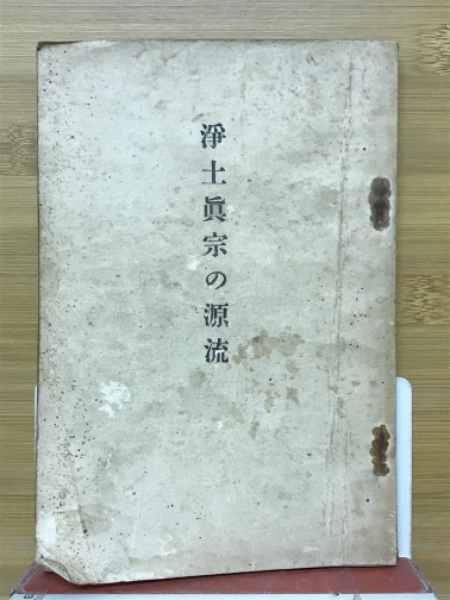 淨土眞宗の源流